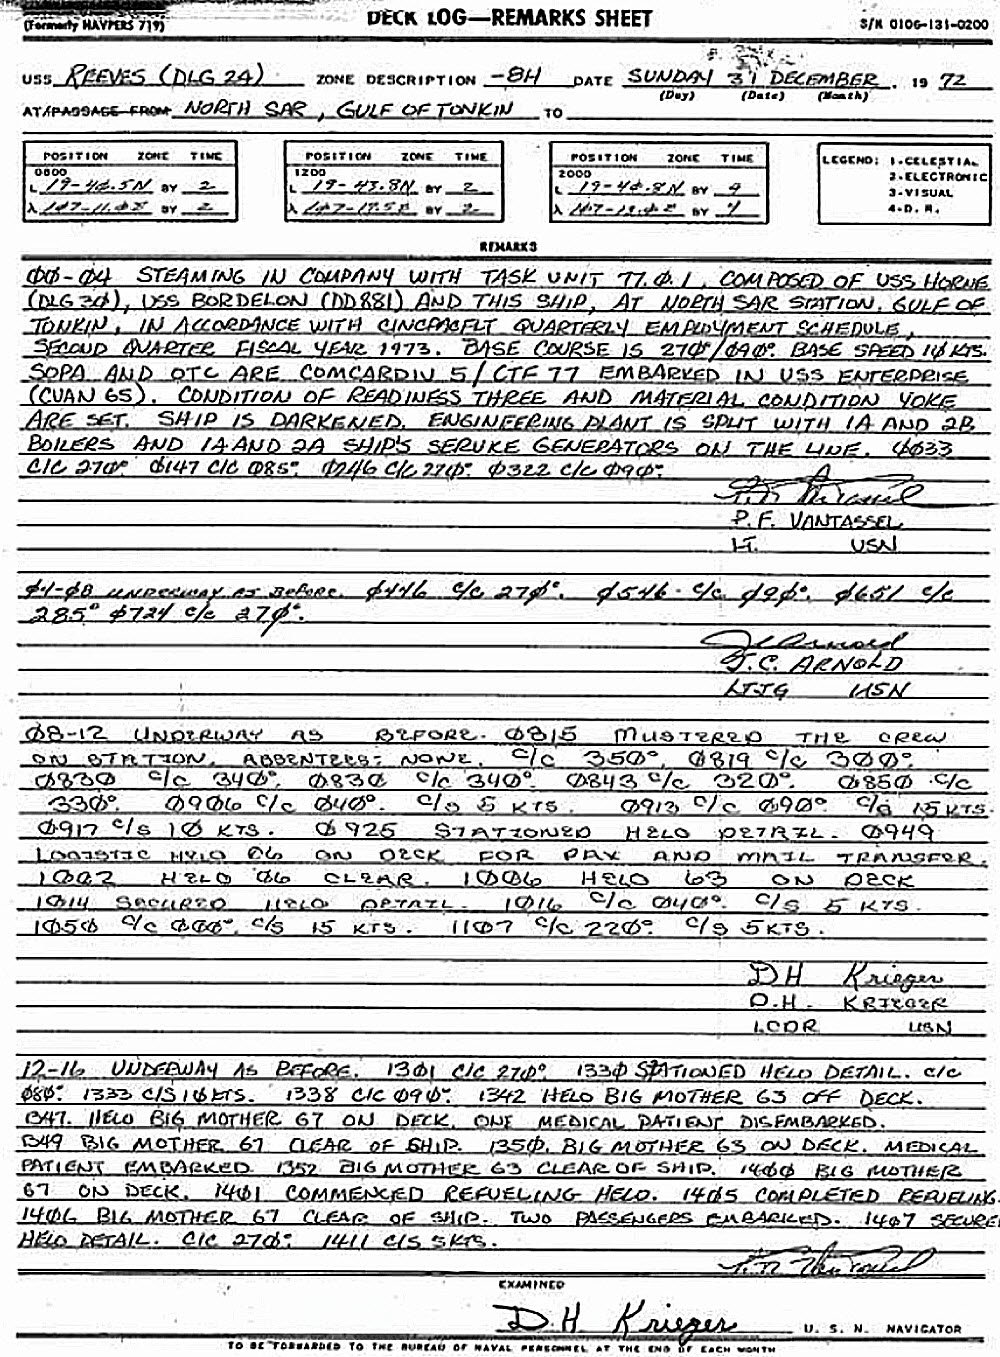 (Formerly NAVPERS 719)
DECK LOG—REMARKS SHEET
S/N 0106-131-0200
USS REEVES (DLG 24) ZONE DESCRIPTION -8H DATE SUNDAY 31 DECEMBER, 19 72
(Day) (Date) (Month)
AT/PASSAGE FROM NORTH SAR, GULF OF TONKIN TO
POSITION ZONE TIME
0800
BY 2
BY 2
POSITION ZONE TIME
1200
L 19-43.8N BY 2
BY 2
POSITION ZONE TIME
2000
BY
BY
LEGEND: 1-CELESTIAL
2-ELECTRONIC
3-VISUAL
4-D. R.
REMARKS
00-04 STEAMING IN COMPANY WITH TASK UNIT 77.0.1, COMPOSED OF USS HORNE
(DLG 30), USS BORDELON (DD881) AND THIS SHIP, AT NORTH SAR STATION, GULF OF
TONKIN, IN ACCORDANCE WITH CINCPACFLT QUARTERLY EMPLOYMENT SCHEDULE,
SECOND QUARTER FISCAL YEAR 1973. BASE COURSE IS 270°/090°. BASE SPEED 10 KTS.
SOPA AND OTC ARE COMCARDIV 5/CTF 77 EMBARKED IN USS ENTERPRISE
(CVAN 65). CONDITION OF READINESS THREE AND MATERIAL CONDITION YOKE
ARE SET. SHIP IS DARKENED. ENGINEERING PLANT IS SPLIT WITH 1A AND 2B
BOILERS AND 1A AND 2A SHIP'S SERVICE GENERATORS ON THE LINE. 0033
C/C 270°. 0147 C/C 085°. 0246 C/C 270°. 0322 C/C 090°.
P. F. VANTASSEL
LT. USN
04-08 UNDERWAY AS BEFORE. 0446 C/C 270°. 0546 C/C 090°. 0651 C/C
285° 0724 C/C 270°.
JC Arnold
J.C. ARNOLD
LTJG USN
08-12 UNDERWAY AS BEFORE. 0815 MUSTERED THE CREW
ON STATION, ABSENTEES: NONE. C/C 350°. 0819 C/C 300°.
0830 C/C 340°. 0830 C/C 340°. 0843 C/C 320°. 0850 C/C
330°. 0906 C/C 040°. C/S 5 KTS. 0913 C/C 090° C/S 15 KTS.
0917 C/S 10 KTS. 0925 STATIONED HELO DETAIL. 0949
LOGISTIC HELO 06 ON DECK FOR PAX AND MAIL TRANSFER.
1002 HELO 06 CLEAR. 1006 HELO 63 ON DECK
1014 SECURED HELO DETAIL. 1016 C/C 040°. C/S 5 KTS.
1050 C/C 000°. C/S 15 KTS. 1107 C/C 220°. C/S 5 KTS.
D H Krieger
D.H. KRIEGER
LCDR USN
12-16 UNDERWAY AS BEFORE. 1301 C/C 270°. 1330 STATIONED HELO DETAIL. C/C
080°. 1333 C/S 10 KTS. 1338 C/C 090°. 1342 HELO BIG MOTHER 63 OFF DECK.
1347. HELO BIG MOTHER 67 ON DECK. ONE MEDICAL PATIENT DISEMBARKED.
1349 BIG MOTHER 67 CLEAR OF SHIP. 1350. BIG MOTHER 63 ON DECK. MEDICAL
PATIENT EMBARKED 1352 BIG MOTHER 63 CLEAR OF SHIP. 1400 BIG MOTHER
67 ON DECK. 1401 COMMENCED REFUELING HELO. 1405 COMPLETED REFUELING.
1406 BIG MOTHER 67 CLEAR OF SHIP. TWO PASSENGERS EMBARKED. 1407 SECURE
HELO DETAIL. C/C 270°. 1411 C/S 5 KTS.
EXAMINED
D.H. Krieger U. S. N. NAVIGATOR
TO BE FORWARDED TO THE BUREAU OF NAVAL PERSONNEL AT THE END OF EACH MONTH